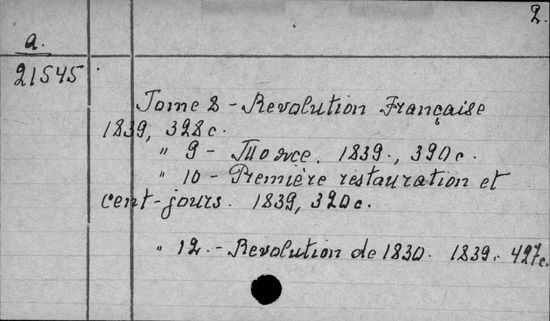 2.
a.
21545
Tome 8 - Revolution Française
1839, 328 с.
" 9 - Тоже. 1839., 390 с.
" 10 - Première restauration et
cent-jours. 1839, 320 с.
" 12. - Revolution de 1830. 1839. 427 с.